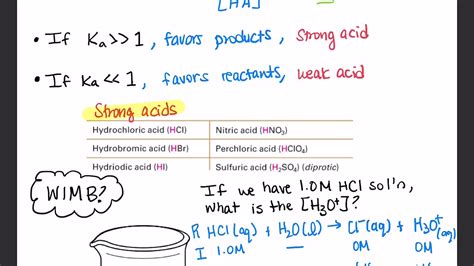 [HA]
• If Ka >> 1, favors products, strong acid
• If Ka << 1, favors reactants, weak acid
Strong acids
Hydrochloric acid (HCl) Nitric acid (HNO₃)
Hydrobromic acid (HBr) Perchloric acid (HClO₄)
Hydriodic acid (HI) Sulfuric acid (H₂SO₄) (diprotic)
WIMB?
If we have 1.0M HCl sol'n,
what is the [H₃O⁺]?
R HCl(aq) + H₂O(l) → Cl⁻(aq) + H₃O⁺(aq)
I 1.0M — 0M 0M